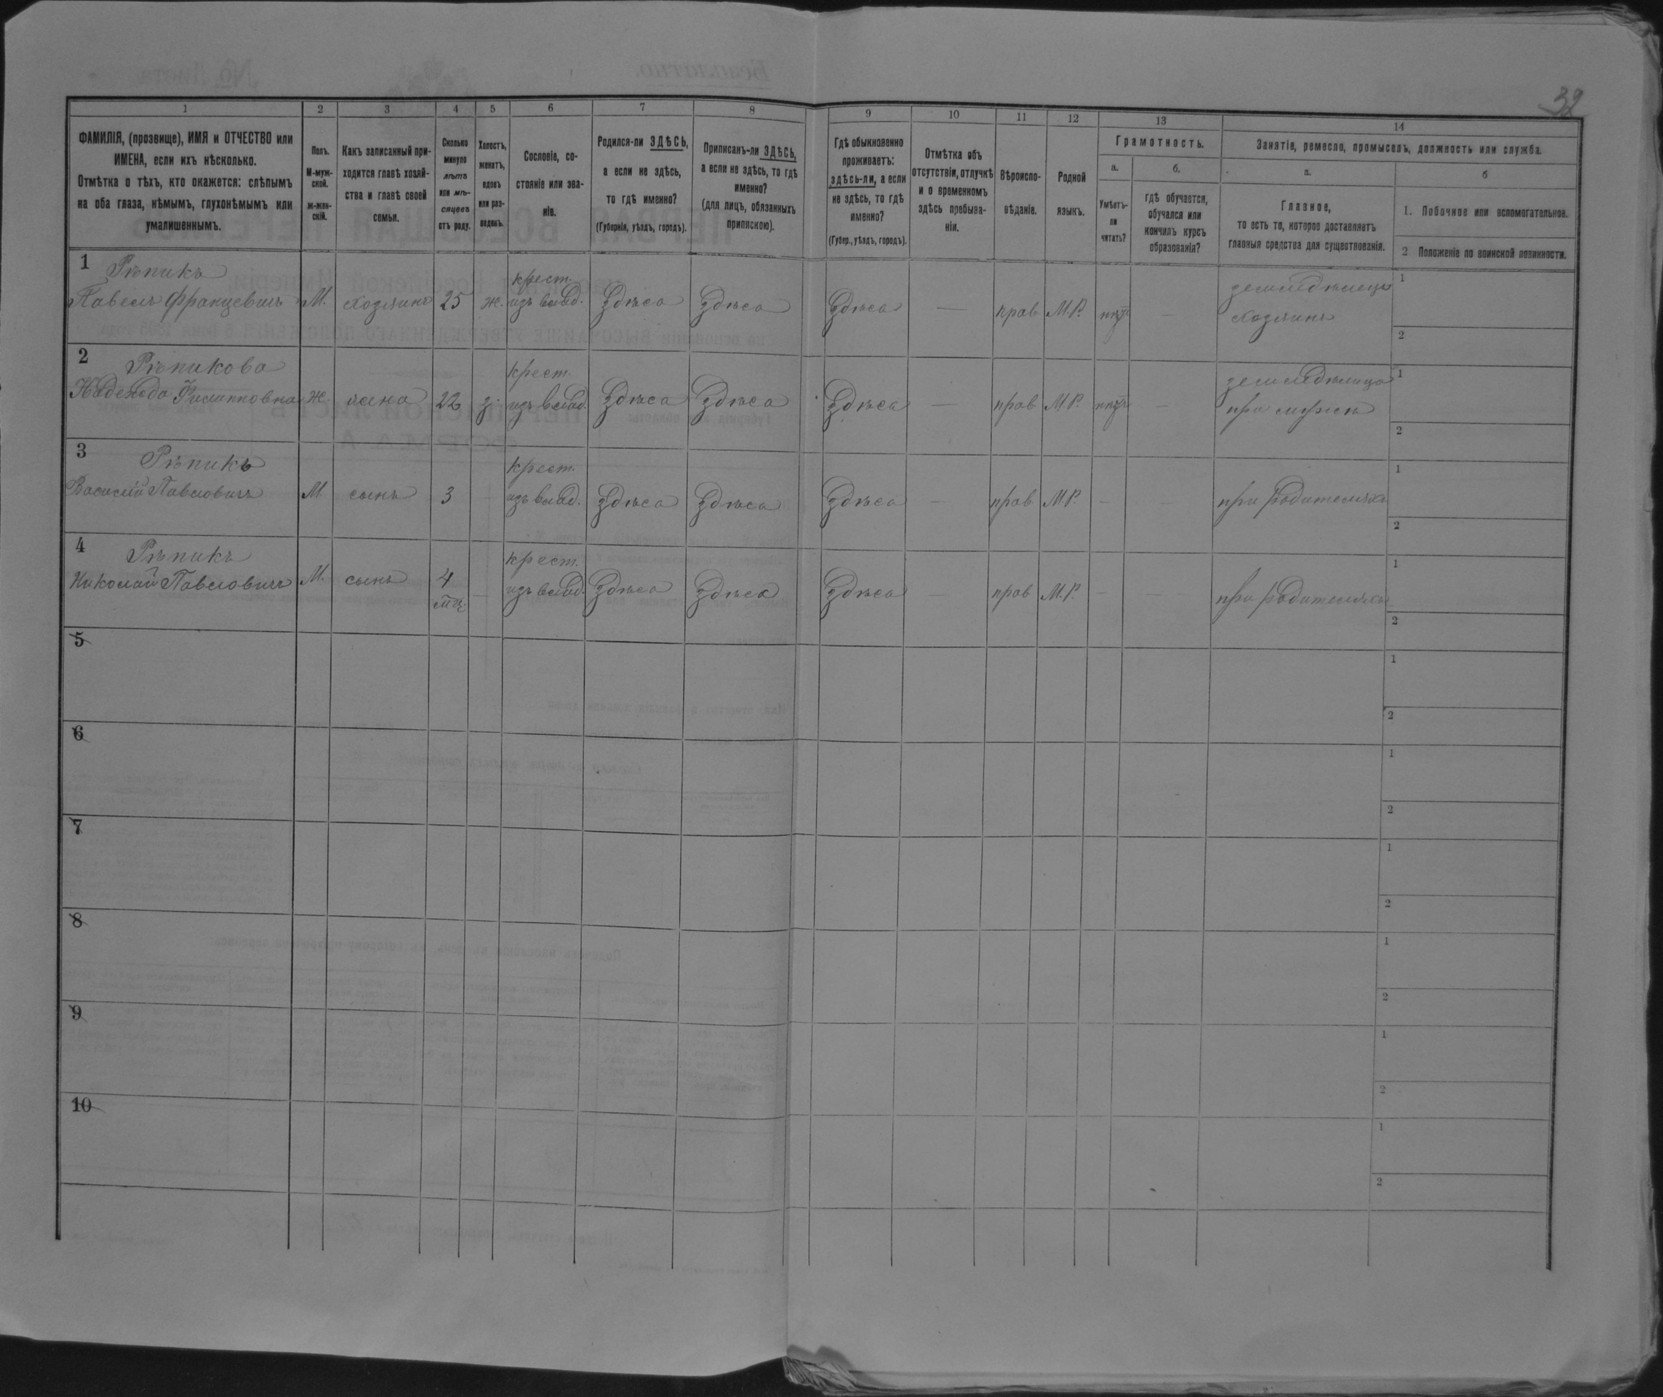 32
1 2 3 4 5 6 7 8 9 10 11 12 13 14
ФАМИЛІЯ, (прозвище), ИМЯ и ОТЧЕСТВО или
ИМЕНА, если ихъ нѣсколько.
Отмѣтка о тѣхъ, кто окажется: слѣпымъ
на оба глаза, нѣмымъ, глухонѣмымъ или
умалишеннымъ.
Полъ.
М-муж-
ской.
Ж-жен-
скій.
Какъ записанный при-
ходится главѣ хозяй-
ства и главѣ своей
семьи.
Сколько
минуло
лѣтъ
или мѣ-
сяцевъ
отъ роду.
Холостъ,
женатъ,
вдовъ
или раз-
веденъ.
Сословіе, со-
стояніе или зва-
ніе.
Родился-ли ЗДѢСЬ,
а если не здѣсь,
то гдѣ именно?
(Губернія, уѣздъ, городъ).
Приписанъ-ли ЗДѢСЬ,
а если не здѣсь, то гдѣ
именно?
(для лицъ, обязанныхъ
припискою).
Гдѣ обыкновенно
проживаетъ:
здѣсь-ли, а если
не здѣсь, то гдѣ
именно?
(Губер., уѣздъ, городъ).
Отмѣтка объ
отсутствіи, отлучкѣ
и о временномъ
здѣсь пребыва-
ніи.
Вѣроиспо-
вѣданіе.
Родной
языкъ.
Грамотность.
а.
Умѣетъ-
ли
читать?
б.
гдѣ обучается,
обучался или
кончилъ курсъ
образованія?
Занятіе, ремесло, промыселъ, должность или служба.
а.
Главное,
то есть то, которое доставляетъ
главныя средства для существованія.
б
1. Побочное или вспомогательное.
2 Положеніе по воинской повинности.
1 Рѣпикъ крест. земледѣлецъ 1
Павелъ Францевичъ М. хозяинъ 25 ж. изъ влад. Здѣсь Здѣсь Здѣсь — прав М.Р. — хозяинъ
2
2 Рѣпикова крест. земледѣлецъ 1
Надежда Филипповна Ж жена 22 з. изъ влад. Здѣсь Здѣсь Здѣсь — прав М.Р. — при мужѣ
2
3 Рѣпикъ крест. 1
Василій Павловичъ М сынъ 3 — изъ влад. Здѣсь Здѣсь Здѣсь — прав М.Р. — — при родителяхъ
2
4 Рѣпикъ крест. 1
Николай Павловичъ М. сынъ 4 — изъ влад. Здѣсь Здѣсь Здѣсь — прав М.Р. — — при родителяхъ
2
5 1
2
6 1
2
7 1
2
8 1
2
9 1
2
10 1
2